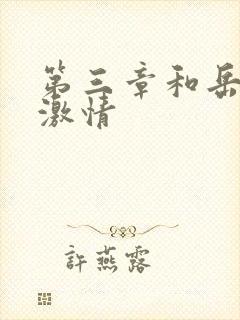 第三章和岳
激情
許燕露